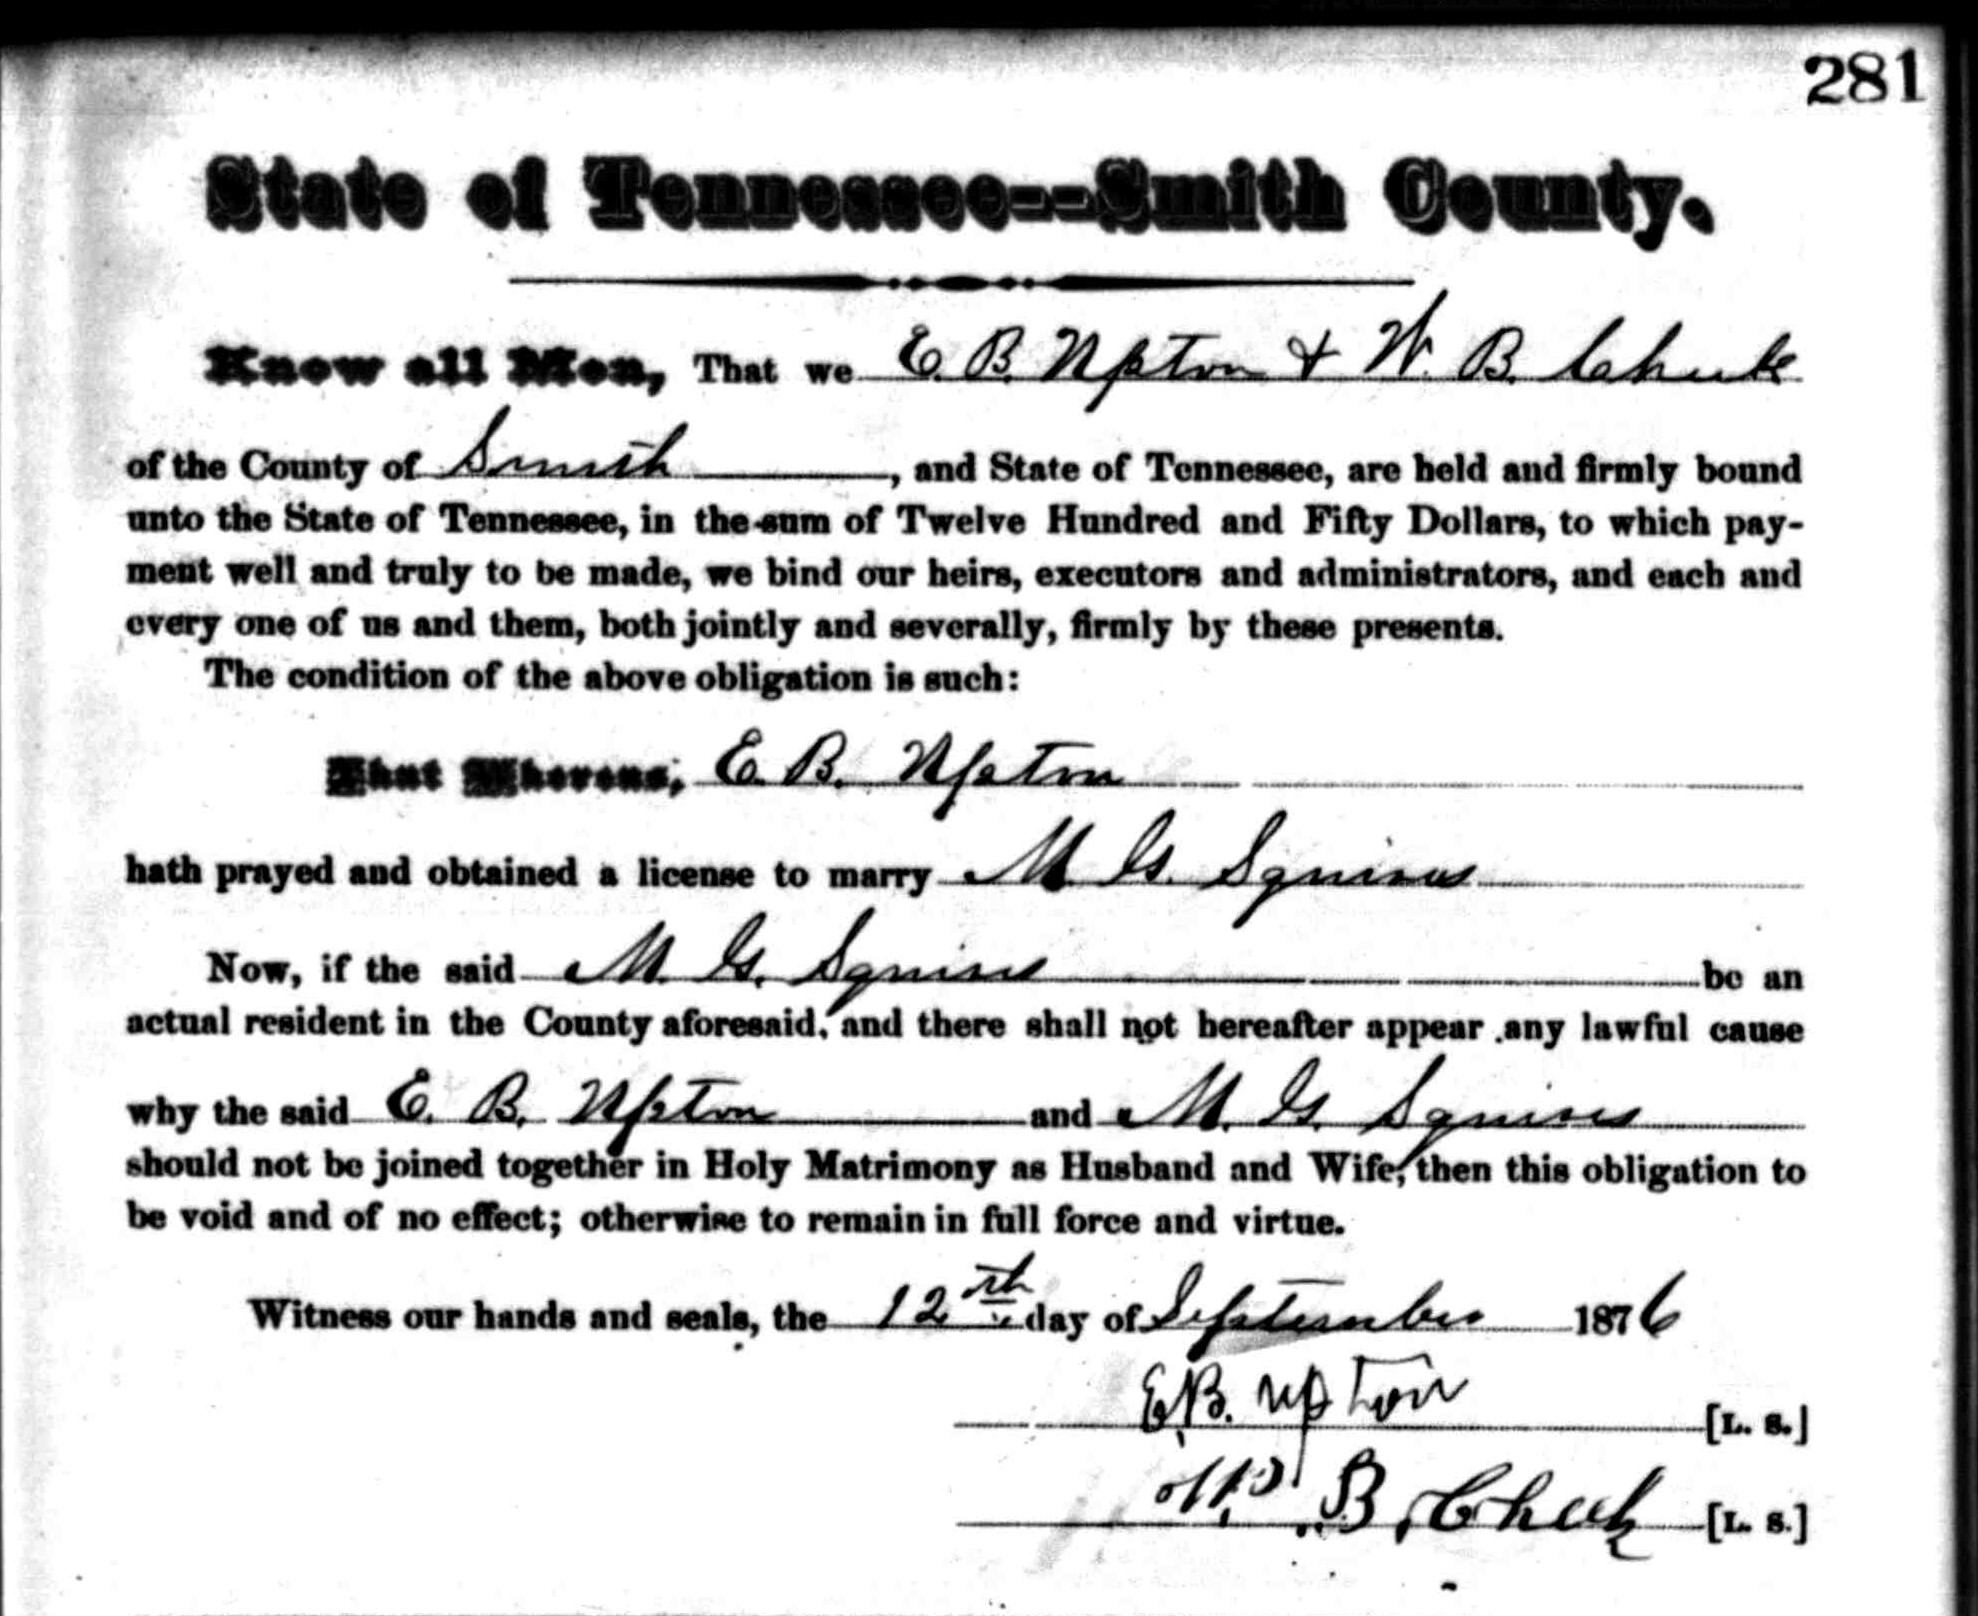 281
State of Tennessee--Smith County.
Know all Men, That we E. B. Upton & W. B. Cheek
of the County of Smith, and State of Tennessee, are held and firmly bound
unto the State of Tennessee, in the sum of Twelve Hundred and Fifty Dollars, to which pay-
ment well and truly to be made, we bind our heirs, executors and administrators, and each and
every one of us and them, both jointly and severally, firmly by these presents.
The condition of the above obligation is such:
That Whereas, E. B. Upton
hath prayed and obtained a license to marry M. G. Squires
Now, if the said M. G. Squires be an
actual resident in the County aforesaid, and there shall not hereafter appear any lawful cause
why the said E. B. Upton and M. G. Squires
should not be joined together in Holy Matrimony as Husband and Wife, then this obligation to
be void and of no effect; otherwise to remain in full force and virtue.
Witness our hands and seals, the 12th day of September 1876
E. B. Upton [L. S.]
W. B. Cheek [L. S.]